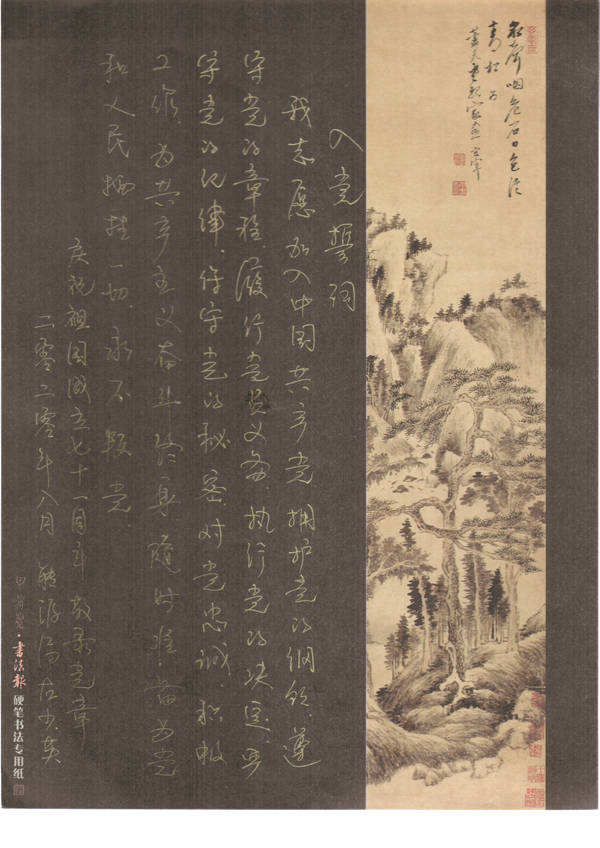 泉聲咽危石日色冷
青松
老親家画 玄宰
入党誓词
我志愿加入中国共产党拥护党的纲领、遵
守党的章程、履行党员义务、执行党的决定、严
守党的纪律、保守党的秘密、对党忠诚、积极
工作、为共产主义奋斗终身、随时准备为党
和人民牺牲一切、永不叛党.
庆祝祖国成立七十一周年敬录党章
二零二零年八月
書法報 硬笔书法专用纸